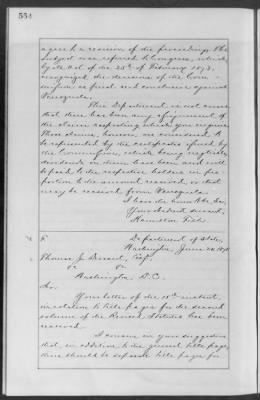 554
a given to a revision of the proceedings. The
subject was referred to Congress, which,
by its Act of the 25th of February 1873,
recognized the decisions of the Com-
mission as final and conclusive against
Venezuela.
This Department is not aware
that there has been any assignment of
the claims respecting which you inquire.
Those claims, however, are considered to
be represented by the certificates issued by
the Commission, which being negotiable,
dividends on them have been and will
be paid to the respective holders in pro-
portion to the amount received, or that
may be received from Venezuela.
I have the honor to be, Sir,
Your obedient servant,
Hamilton Fish.
Department of State,
Washington, June
Thomas J. Durant, Esq.
Washington, D.C.
Sir,
Your letter of the instant
in relation to title pages for the second
volume of the Revised Statutes has been
received.
I concur in your suggestion
that, in addition to the general title page,
there should be separate title pages for